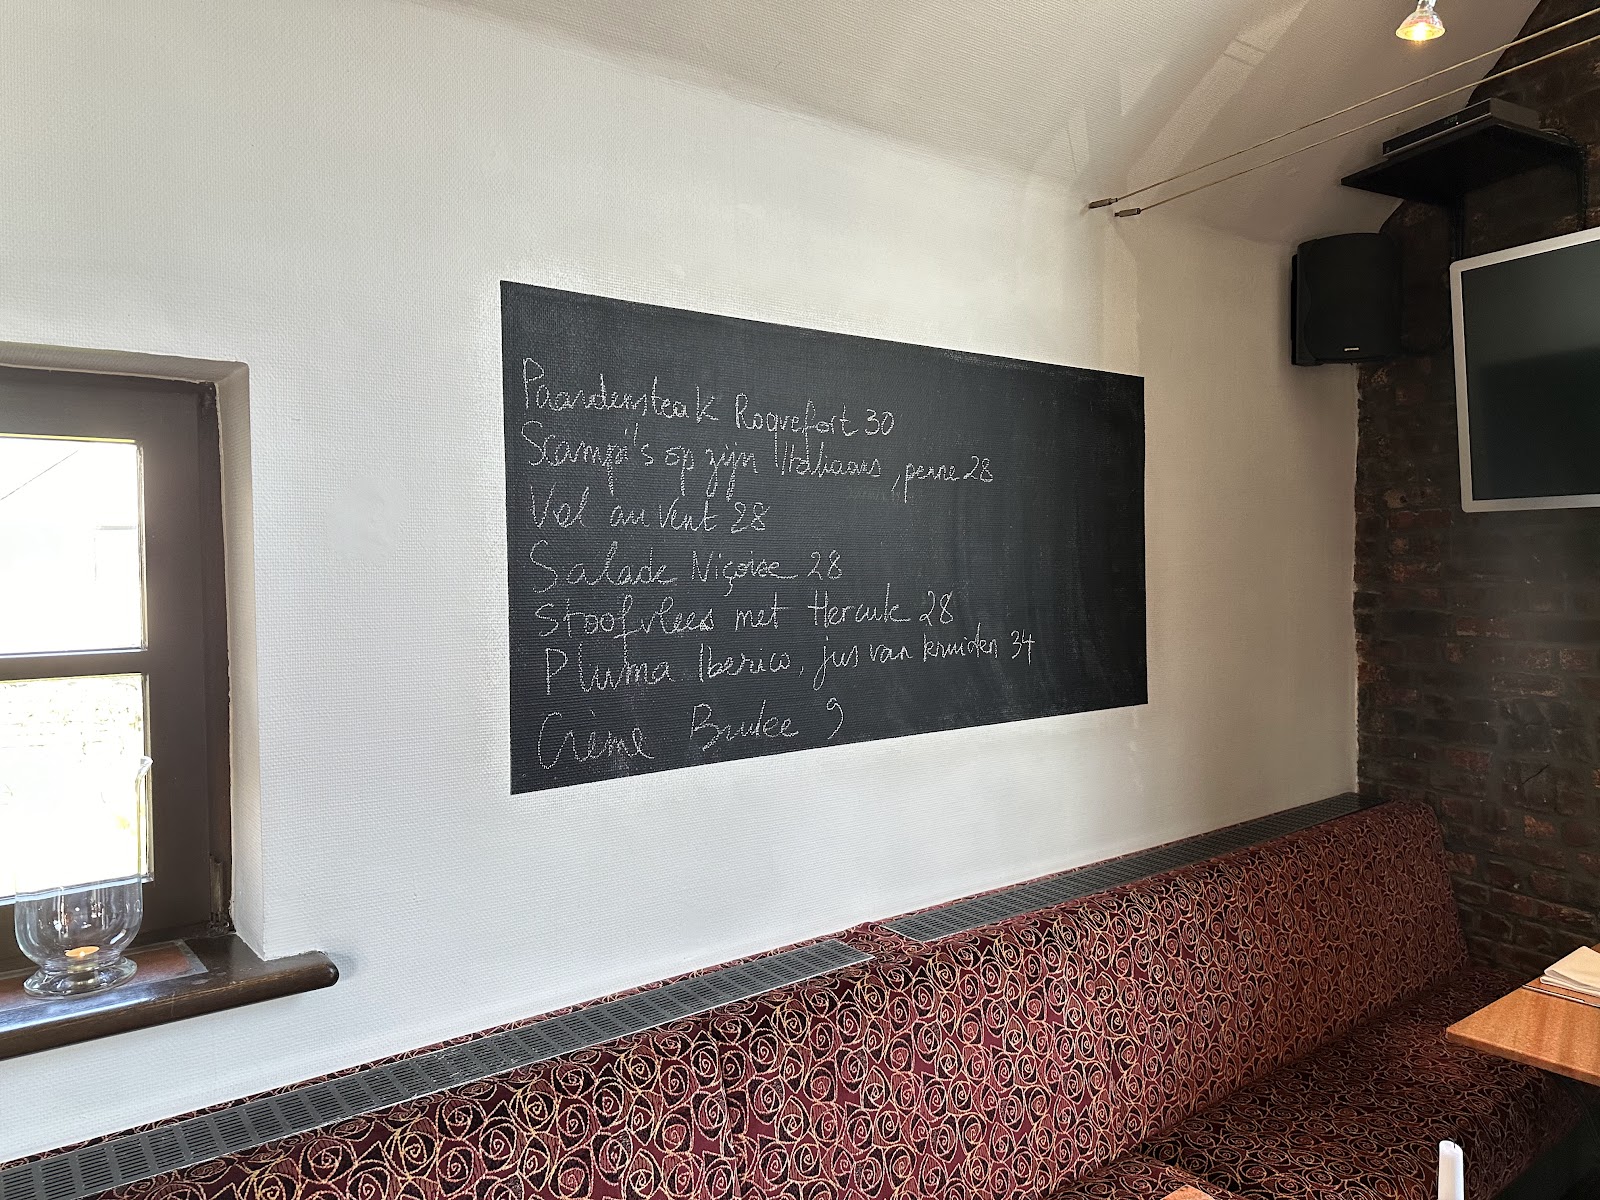 Paardensteak Roquefort 30
Scampi's op zijn Italiaans, penne 28
Vol au vent 28
Salade Niçoise 28
Stoofvlees met Hercule 28
Pluma Iberico, jus van kruiden 34
Crème Brulee 9